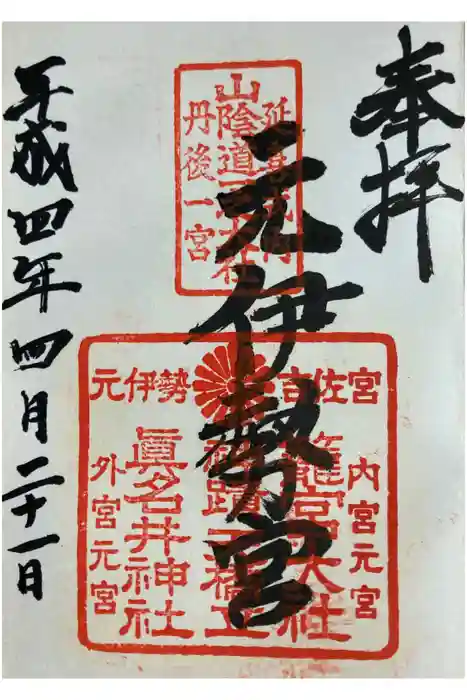 奉拝
元伊勢宮
平成四年四月二十一日
延喜式内
山陰道一大社
丹後一宮
元伊勢 吉佐宮
内宮元宮
籠宮大社
眞名井神社
外宮元宮